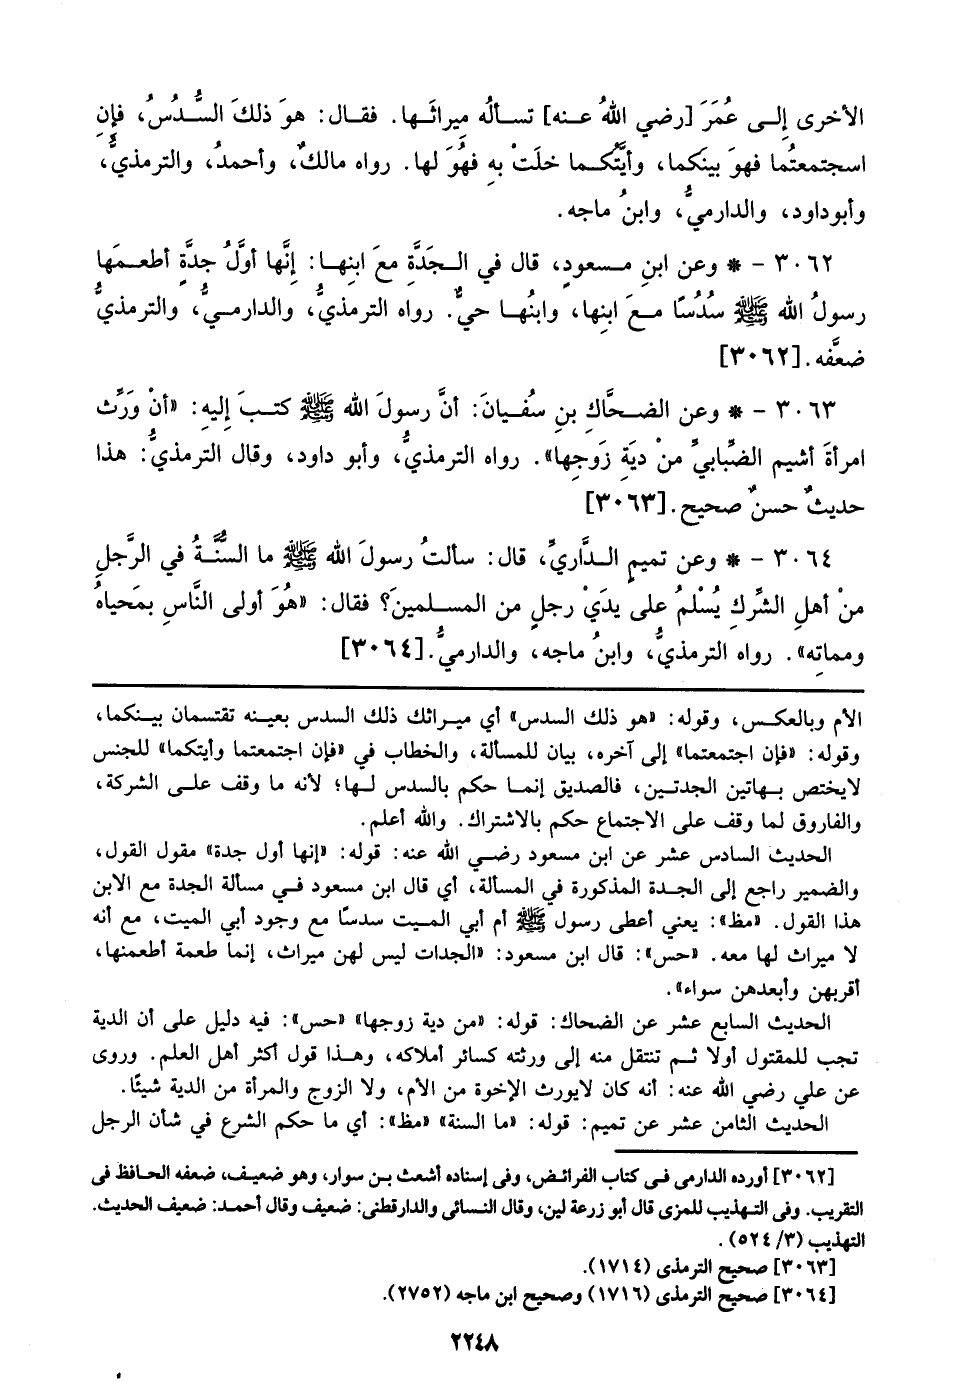 الأخرى إِلـى عُمَرَ [رضي اللهُ عـنه] تسـألُه مِيراثَـها. فقـال: هوَ ذلكَ السُّدُسُ، فإِنِ
اسجتمعتُما فهوَ بينَكما، وأيَّتُكـما خلَتْ بهِ فهُوَ لها. رواه مالكٌ، وأحمدُ، والترمذيُّ،
وأبوداود، والدارميُّ، وابنُ ماجه.
٣٠٦٢ - * وعن ابنِ مـسعودٍ، قال في الـجَدَّةِ معَ ابنِهـا: إِنَّها أوَّلُ جدَّةٍ أطعـمَها
رسولُ الله ﷺ سدُسًا مـعَ ابنِها، وابنُهـا حيٌّ. رواه الترمذيُّ، والدارمـيُّ، والترمذيُّ
ضعَّفه. [٣٠٦٢]
٣٠٦٣ - * وعن الضـحَّاكِ بنِ سُفـيانَ: أنَّ رسولَ الله ﷺ كتـبَ إِليهِ: «أنْ وَرِّث
امرأةَ أشيم الضِّبابيِّ منْ ديَةِ زَوجِها». رواه الترمذيُّ، وأبو داود، وقال الترمذيُّ: هذا
حديثٌ حسنٌ صحيح. [٣٠٦٣]
٣٠٦٤ - * وعن تميمٍ الـدَّاريِّ، قال: سألتُ رسولَ الله ﷺ ما السُّنَّـةُ في الرَّجلِ
منْ أهلِ الشِّركِ يُسْلمُ على يدَيْ رجلٍ من المسـلمينَ؟ فقال: «هُوَ أولى النَّاسِ بمَحياهُ
ومماتِه». رواه الترمذيُّ، وابنُ ماجه، والدارميُّ. [٣٠٦٤]
الأم وبالعكـس، وقوله: «هو ذلك السدس» أي ميـراثك ذلك السدس بعيـنه تقتسمان بيـنكما،
وقوله: «فإن اجتمعتما» إلى آخره، بيان للمسألة، والخطاب في «فإن اجتمعتما وأيتكما» للجنس
لايختص بـهاتين الجدتـين، فالصديق إنمـا حكم بالسدس لـها؛ لأنه ما وقف علـى الشركة،
والفاروق لما وقف على الاجتماع حكم بالاشتراك. والله أعلم.
الحديث السادس عشر عن ابن مسعود رضـي الله عنه: قوله: «إنها أول جدة» مقول القول،
والضمير راجع إلى الجدة المذكورة في المسألة، أي قال ابن مسعود فـي مسألة الجدة مع الابن
هذا القول. «مظ»: يعني أعطى رسول ﷺ أم أبي الميت سدسًا مع وجود أبي الميت، مع أنه
لا ميراث لها معه. «حس»: قال ابن مسعود: «الجدات ليس لهن ميراث، إنما طعمة أطعمنها،
أقربهن وأبعدهن سواء».
الحديث السابع عشر عن الضحاك: قوله: «من دية زوجها» «حس»: فيه دليل على أن الدية
تجب للمقتول أولا ثـم تنتقل منه إلى ورثته كسائر أملاكه، وهـذا قول أكثر أهل العلم. وروى
عن علي رضي الله عنه: أنه كان لايورث الإخوة من الأم، ولا الزوج والمرأة من الدية شيئًا.
الحديث الثامن عشر عن تميم: قوله: «ما السنة» «مظ»: أي ما حكم الشرع في شأن الرجل
[٣٠٦٢] أورده الدارمى فـى كتاب الفرائـض، وفى إسناده أشعث بـن سوار، وهو ضعيـف، ضعفه الحـافظ فى
التقريب. وفى التـهذيب للمزى قال أبو زرعة لين، وقال النسائى والدارقطنى: ضعيف وقال أحمـد: ضعيف الحديث.
التهذيب (٣/ ٥٢٤).
[٣٠٦٣] صحيح الترمذى (١٧١٤).
[٣٠٦٤] صحيح الترمذى (١٧١٦) وصحيح ابن ماجه (٢٧٥٢).
٢٢٤٨